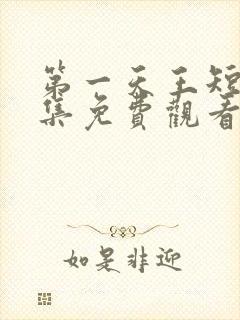 第一天王短
集免費觀看
如是非迎